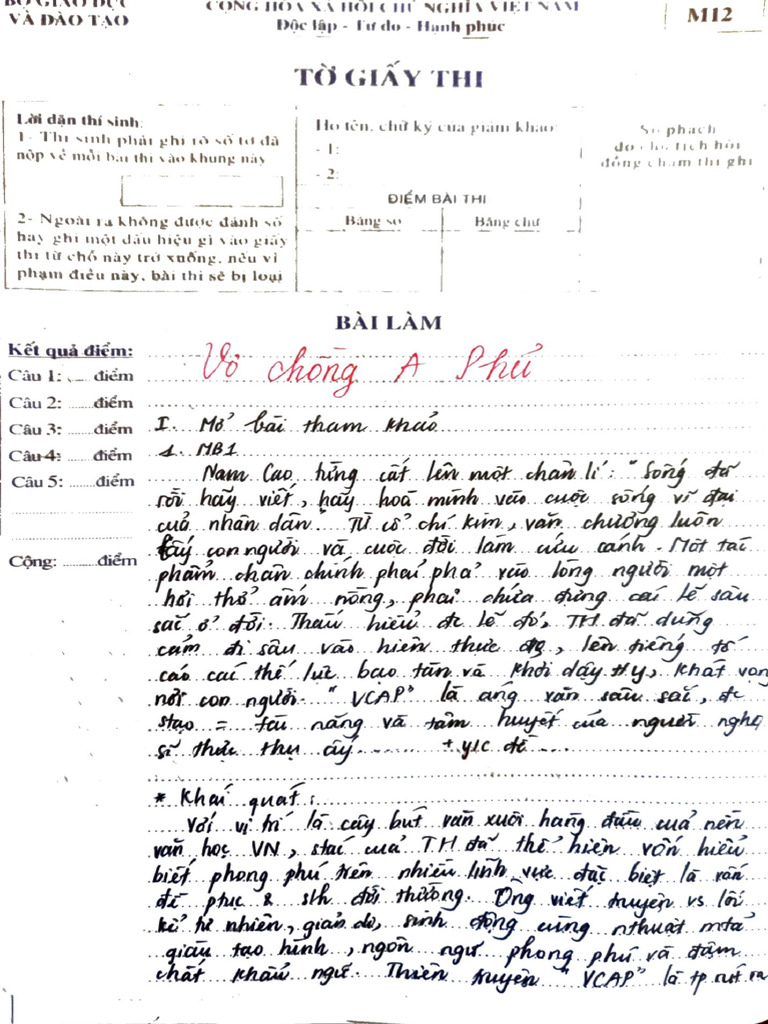 BỘ GIÁO DỤC
VÀ ĐÀO TẠO
CỘNG HÒA XÃ HỘI CHỦ NGHĨA VIỆT NAM
Độc lập - Tự do - Hạnh phúc
M12
TỜ GIẤY THI
Lời dặn thí sinh:
1- Thí sinh phải ghi rõ số tờ đã
nộp về mỗi bài thi vào khung này
2- Ngoài ra không được đánh số
hay ghi một dấu hiệu gì vào giấy
thi từ chỗ này trở xuống, nếu vi
phạm điều này, bài thi sẽ bị loại
Họ tên, chữ ký của giám khảo:
- 1:
- 2:
ĐIỂM BÀI THI
Bằng số
Bằng chữ
Số phách
do chủ tịch hội
đồng chấm thi ghi
BÀI LÀM
Kết quả điểm:
Câu 1: ..... điểm
Câu 2: ......điểm
Câu 3: ......điểm
Câu 4: ......điểm
Câu 5: ......điểm
Cộng: .........điểm
Vợ chồng A Phủ
I. Mở bài tham khảo
1. MB1
Nam Cao từng cất lên một chân lí: "Sống đã
rồi hãy viết, hãy hoà mình vào cuộc sống vĩ đại
của nhân dân". Từ cổ chí kim, văn chương luôn
lấy con người và cuộc đời làm cứu cánh. Một tác
phẩm chân chính phải phả vào lòng người một
hơi thở ấm nóng, phải chứa đựng cái lẽ sâu
sắc ở đời. Thấu hiểu đc lẽ đó, TH đã dũng
cảm đi sâu vào hiện thực đg, lên tiếng tố
cáo các thế lực bạo tàn và khơi dậy ty, khát vọng
nơi con người. "VCAP" là áng văn sâu sắc, đc
stạo = tài năng và tâm huyết của người nghệ
sĩ thực thụ ấy........ + y/c đề....
* Khái quát:
Với vị trí là cây bút văn xuôi hàng đầu của nền
văn học VN, stác của TH đã thể hiện vốn hiểu
biết phong phú trên nhiều lĩnh vực đặc biệt là vấn
đề phục & slh đời thường. Ông viết truyện vs lối
kể tự nhiên, giản dị, sinh động cùng nthuật mtả
giàu tạo hình, ngôn ngữ phong phú và đậm
chất khẩu ngữ. Thiên truyện "VCAP" là tp rút ra